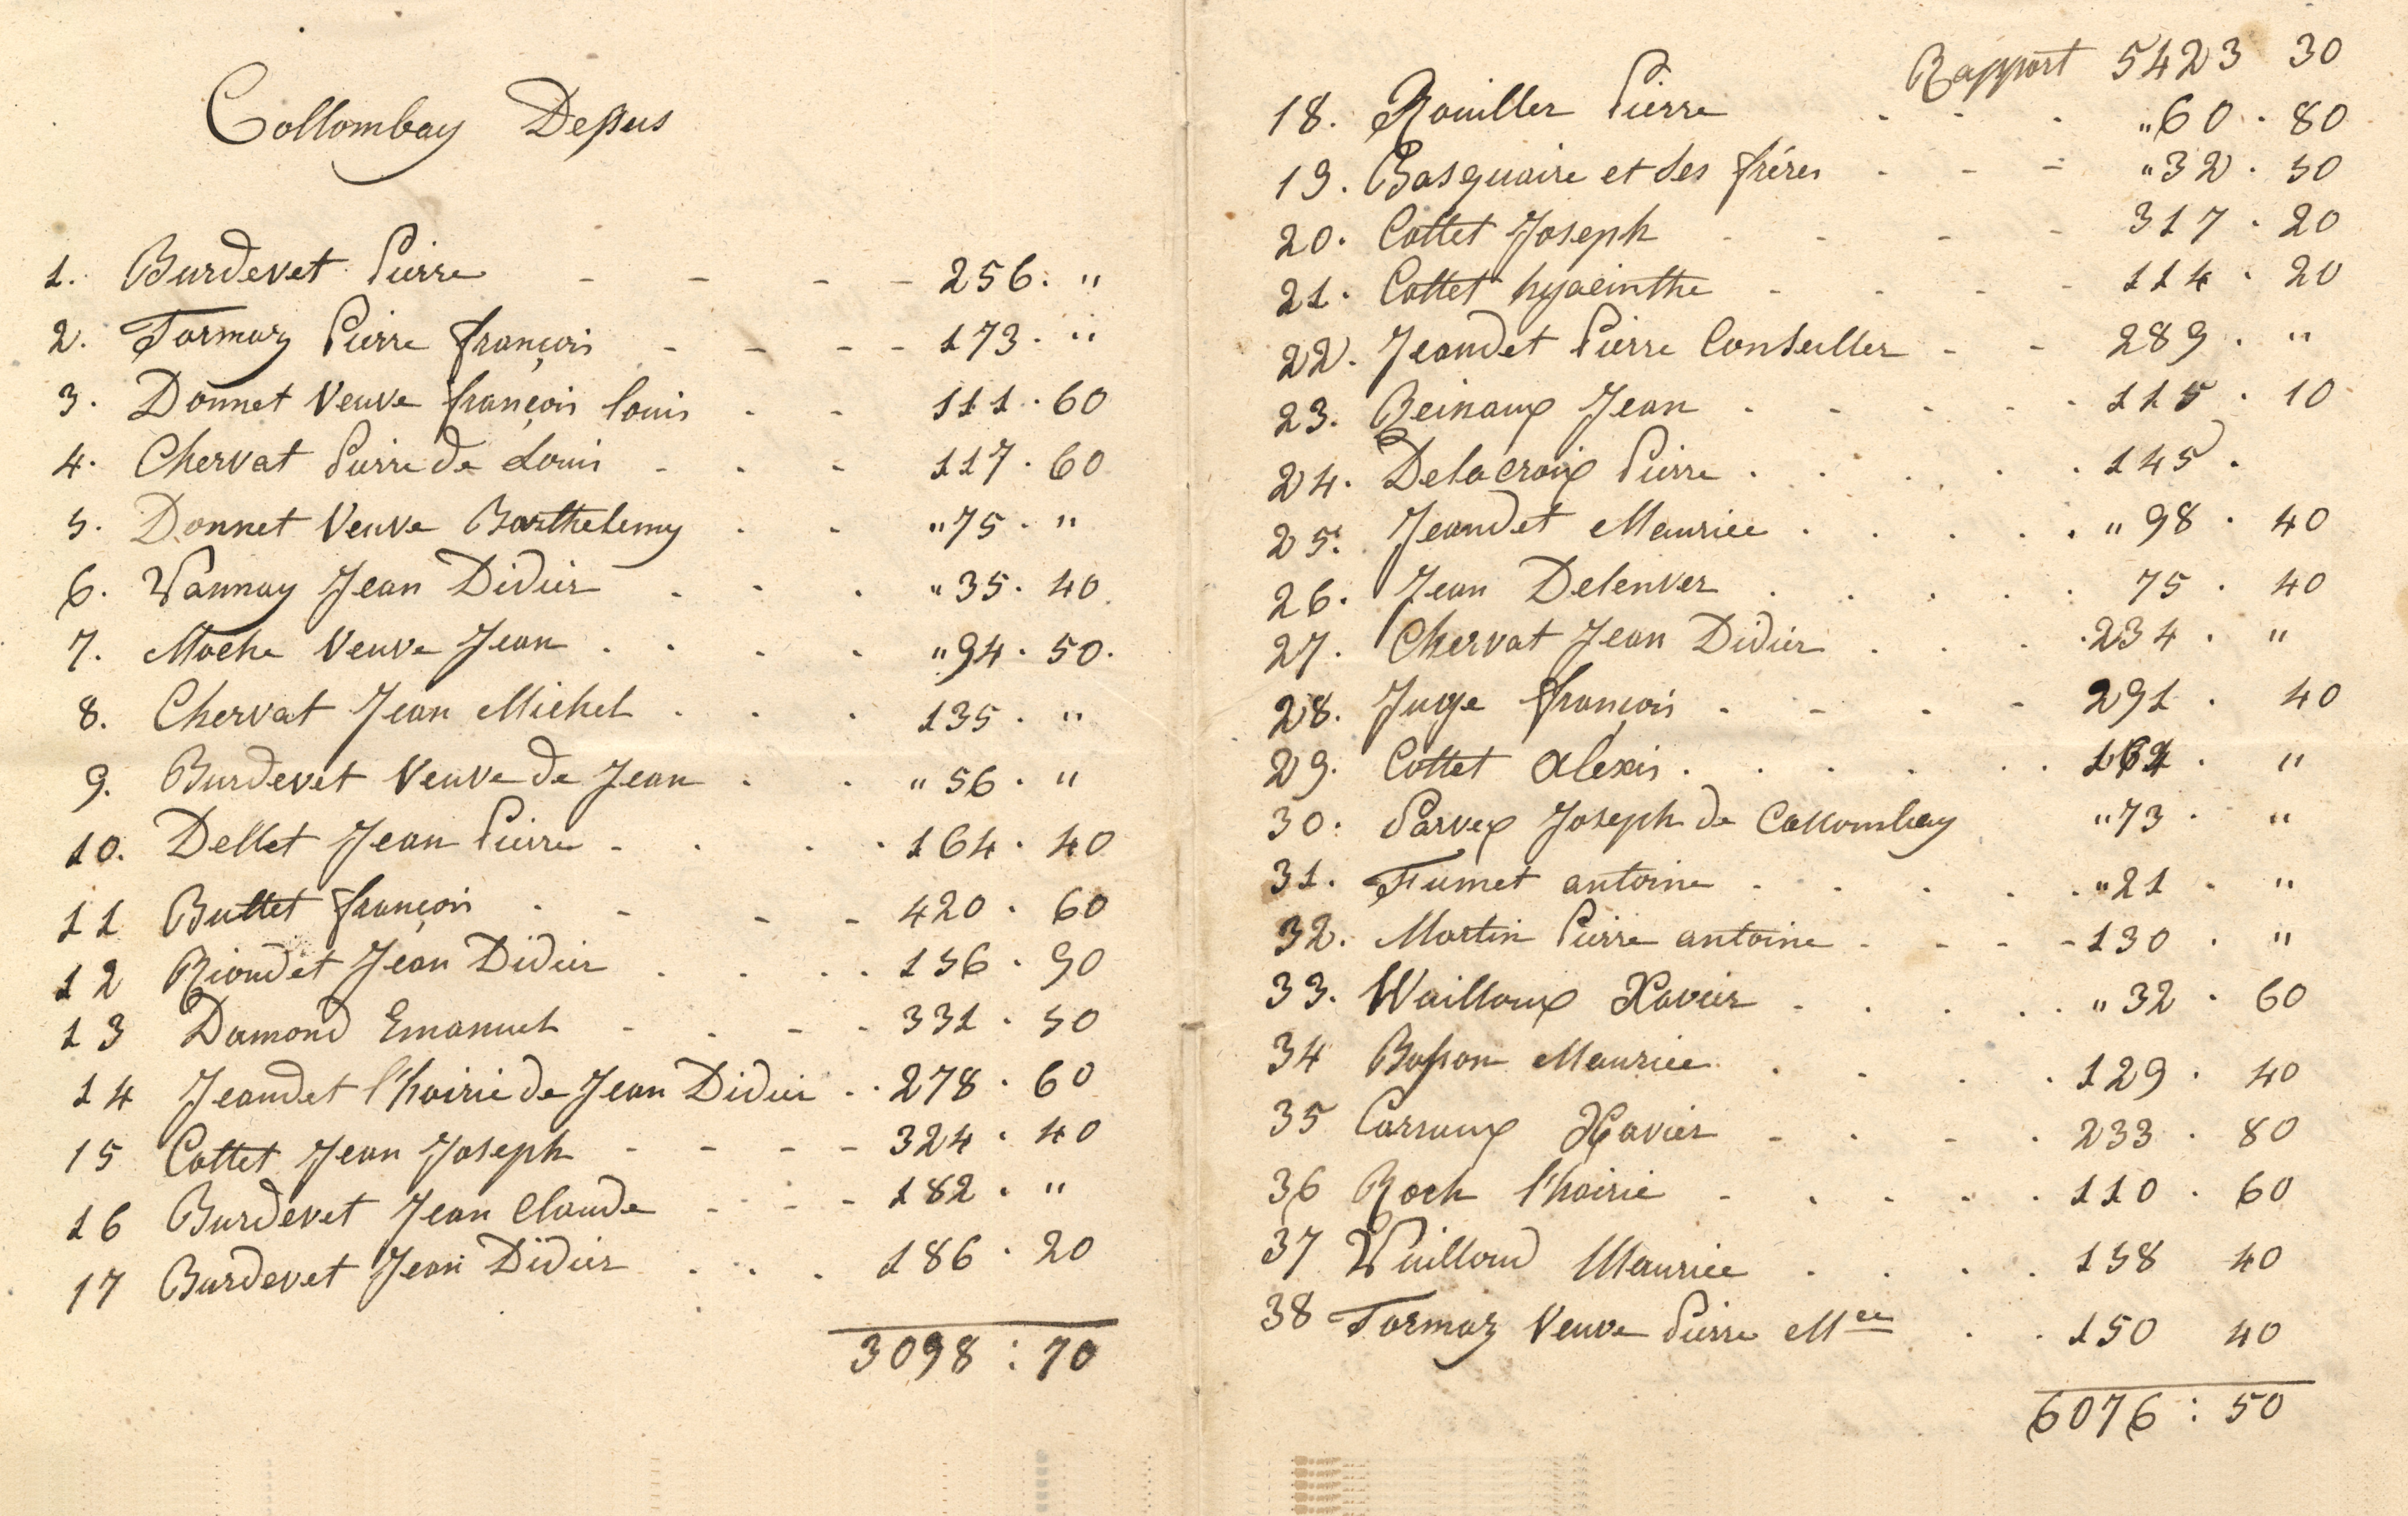 Collombay Dessus
1. Burdevet Pierre - - - - 256. "
2. Tormaz Pierre françois - - - - 173. "
3. Donnet Veuve françois louis - - 111. 60
4. Chervat Pierre de Louis - - - 117. 60
5. Donnet Veuve Barthelemy - - "75. "
6. Vannay Jean Didier . . . "35. 40
7. Moche Veuve Jean . . . . "94. 50.
8. Chervat Jean Michel . . . 135. "
9. Burdevet Veuve de Jean . . "56. "
10. Dellet Jean Pierre - . . . 164. 40
11 Buttet françois - - - - 420. 60
12 Riondet Jean Didier . . . . 156. 90
13 Damond Emanuel - - - - 331. 50
14 Jeandet l'hoirie de Jean Didier . . 278. 60
15 Cottet Jean Joseph - - - - 324. 40
16 Burdevet Jean Claude - - - 182. "
17 Burdevet Jean Didier . . . 186. 20
3098 : 70
Rapport 5423 30
18. Rouiller Pierre . - . "60. 80
19. Basquaire et ses fréres - - - "32. 50
20. Cottet Joseph - - - - 317. 20
21. Cottet hyacinthe - - - - 114. 20
22. Jeandet Pierre Conseiller - - 289. "
23. Reinaux Jean . - - - - 115. 10
24. Delacroix Pierre . . . . . 145.
25. Jeandet Maurice . . . . . "98. 40
26. Jean Delenver . . . . . 75. 40
27. Chervat Jean Didier . . . 234. "
28. Juge françois . - - - 291. 40
29. Cottet Alexis . . . . . . "
30. Parvex Joseph de Collombay "73. "
31. Fumet antoine . . . . . "21. "
32. Martin Pierre antoine - - - - 130. "
33. Wuilloux Xavier . . . . . "32. 60
34 Bosson Maurice . . . . 129. 40
35 Carraux Xavier - . - . 233. 80
36 Roch l'hoirie - . . . . 110. 60
37 Vuilloud Maurice . . . . 158 40
38 Tormaz Veuve Pierre Mce . . 150 40
6076 : 50